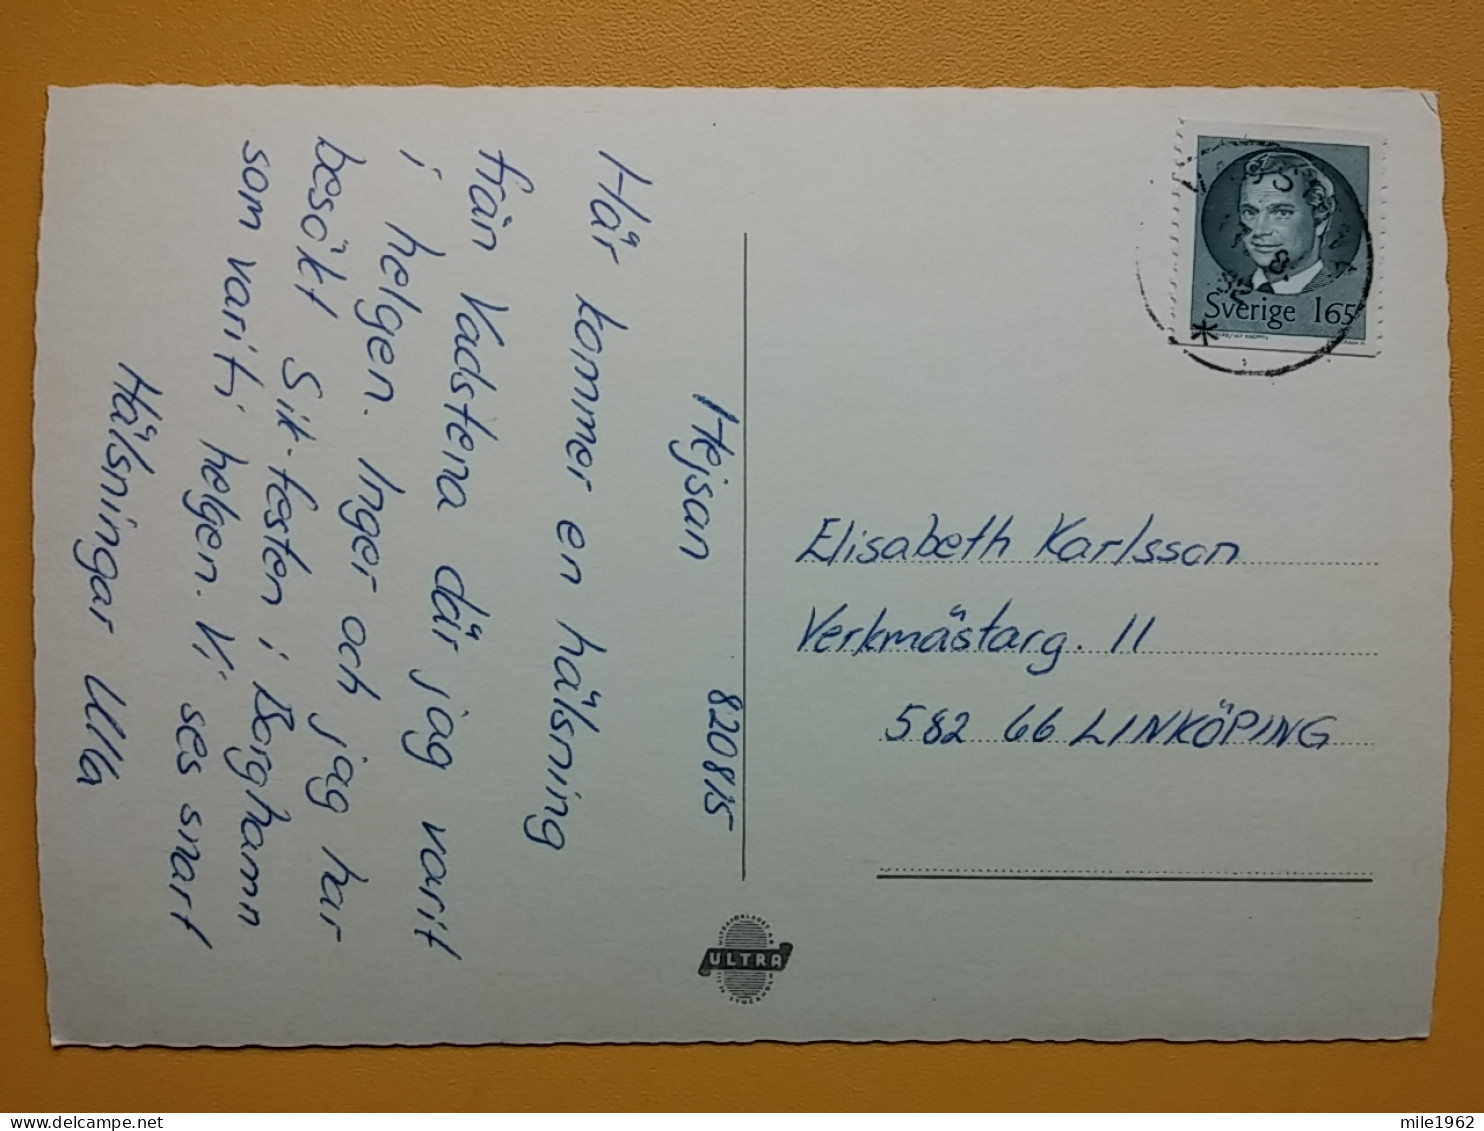 Hejsan 820815
Här kommer en hälsning
från Vadstena där jag varit
i helgen. Inger och jag har
besökt Sik-festen i Borghamn
som varit i helgen. Vi ses snart
Hälsningar Ulla
Sverige 165
Elisabeth Karlsson
Verkmästarg. 11
582 66 LINKÖPING
ULTRAFÖRLAGET A.B.
ULTRA
STOCKHOLM
mile1962